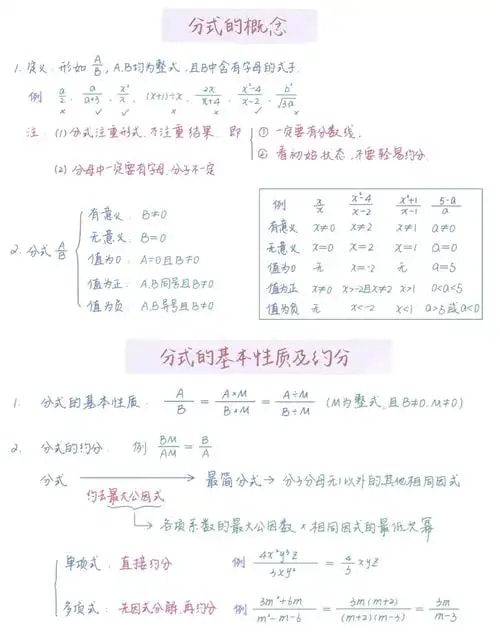 分式的概念
1. 定义: 形如 A/B, A.B均为整式, 且B中含有字母的式子.
例 a/2、 a/(a+3)、 x²/x、 (x+1)÷x、 2x/(x+4)、 (x²-4)/(x-2)、 b²/√3a
× ✓ ✓ × ✓ ×
注: (1) 分式注重形式, 不注重结果. 即 ① 一定要有分数线.
② 看初始状态, 不要轻易约分.
(2) 分母中一定要有字母, 分子不一定
2. 分式 A/B
有意义: B≠0
无意义: B=0
值为0: A=0且B≠0
值为正: A.B同号且B≠0
值为负: A.B异号且B≠0
例 x/x (x²-4)/(x-2) (x²+1)/(x-1) (5-a)/a
有意义 x≠0 x≠2 x≠1 a≠0
无意义 x=0 x=2 x=1 a=0
值为0 无 x=-2 无 a=5
值为正 x≠0 x>-2且x≠2 x>1 0<a<5
值为负 无 x<-2 x<1 a>5或a<0
分式的基本性质及约分
1. 分式的基本性质: A/B = A×M/B×M = A÷M/B÷M (M为整式, 且B≠0. M≠0)
2. 分式的约分: 例 BM/AM = B/A
分式 → 最简分式 → 分子分母无1以外的其他相同因式
约去最大公因式
→ 各项系数的最大公因数 × 相同因式的最低次幂
单项式: 直接约分 例 = 4/3 xyz
多项式: 先因式分解, 再约分 例 (3m²+6m)/(m²-m-6) = 3m(m+2)/(m+2)(m-3) = 3m/(m-3)